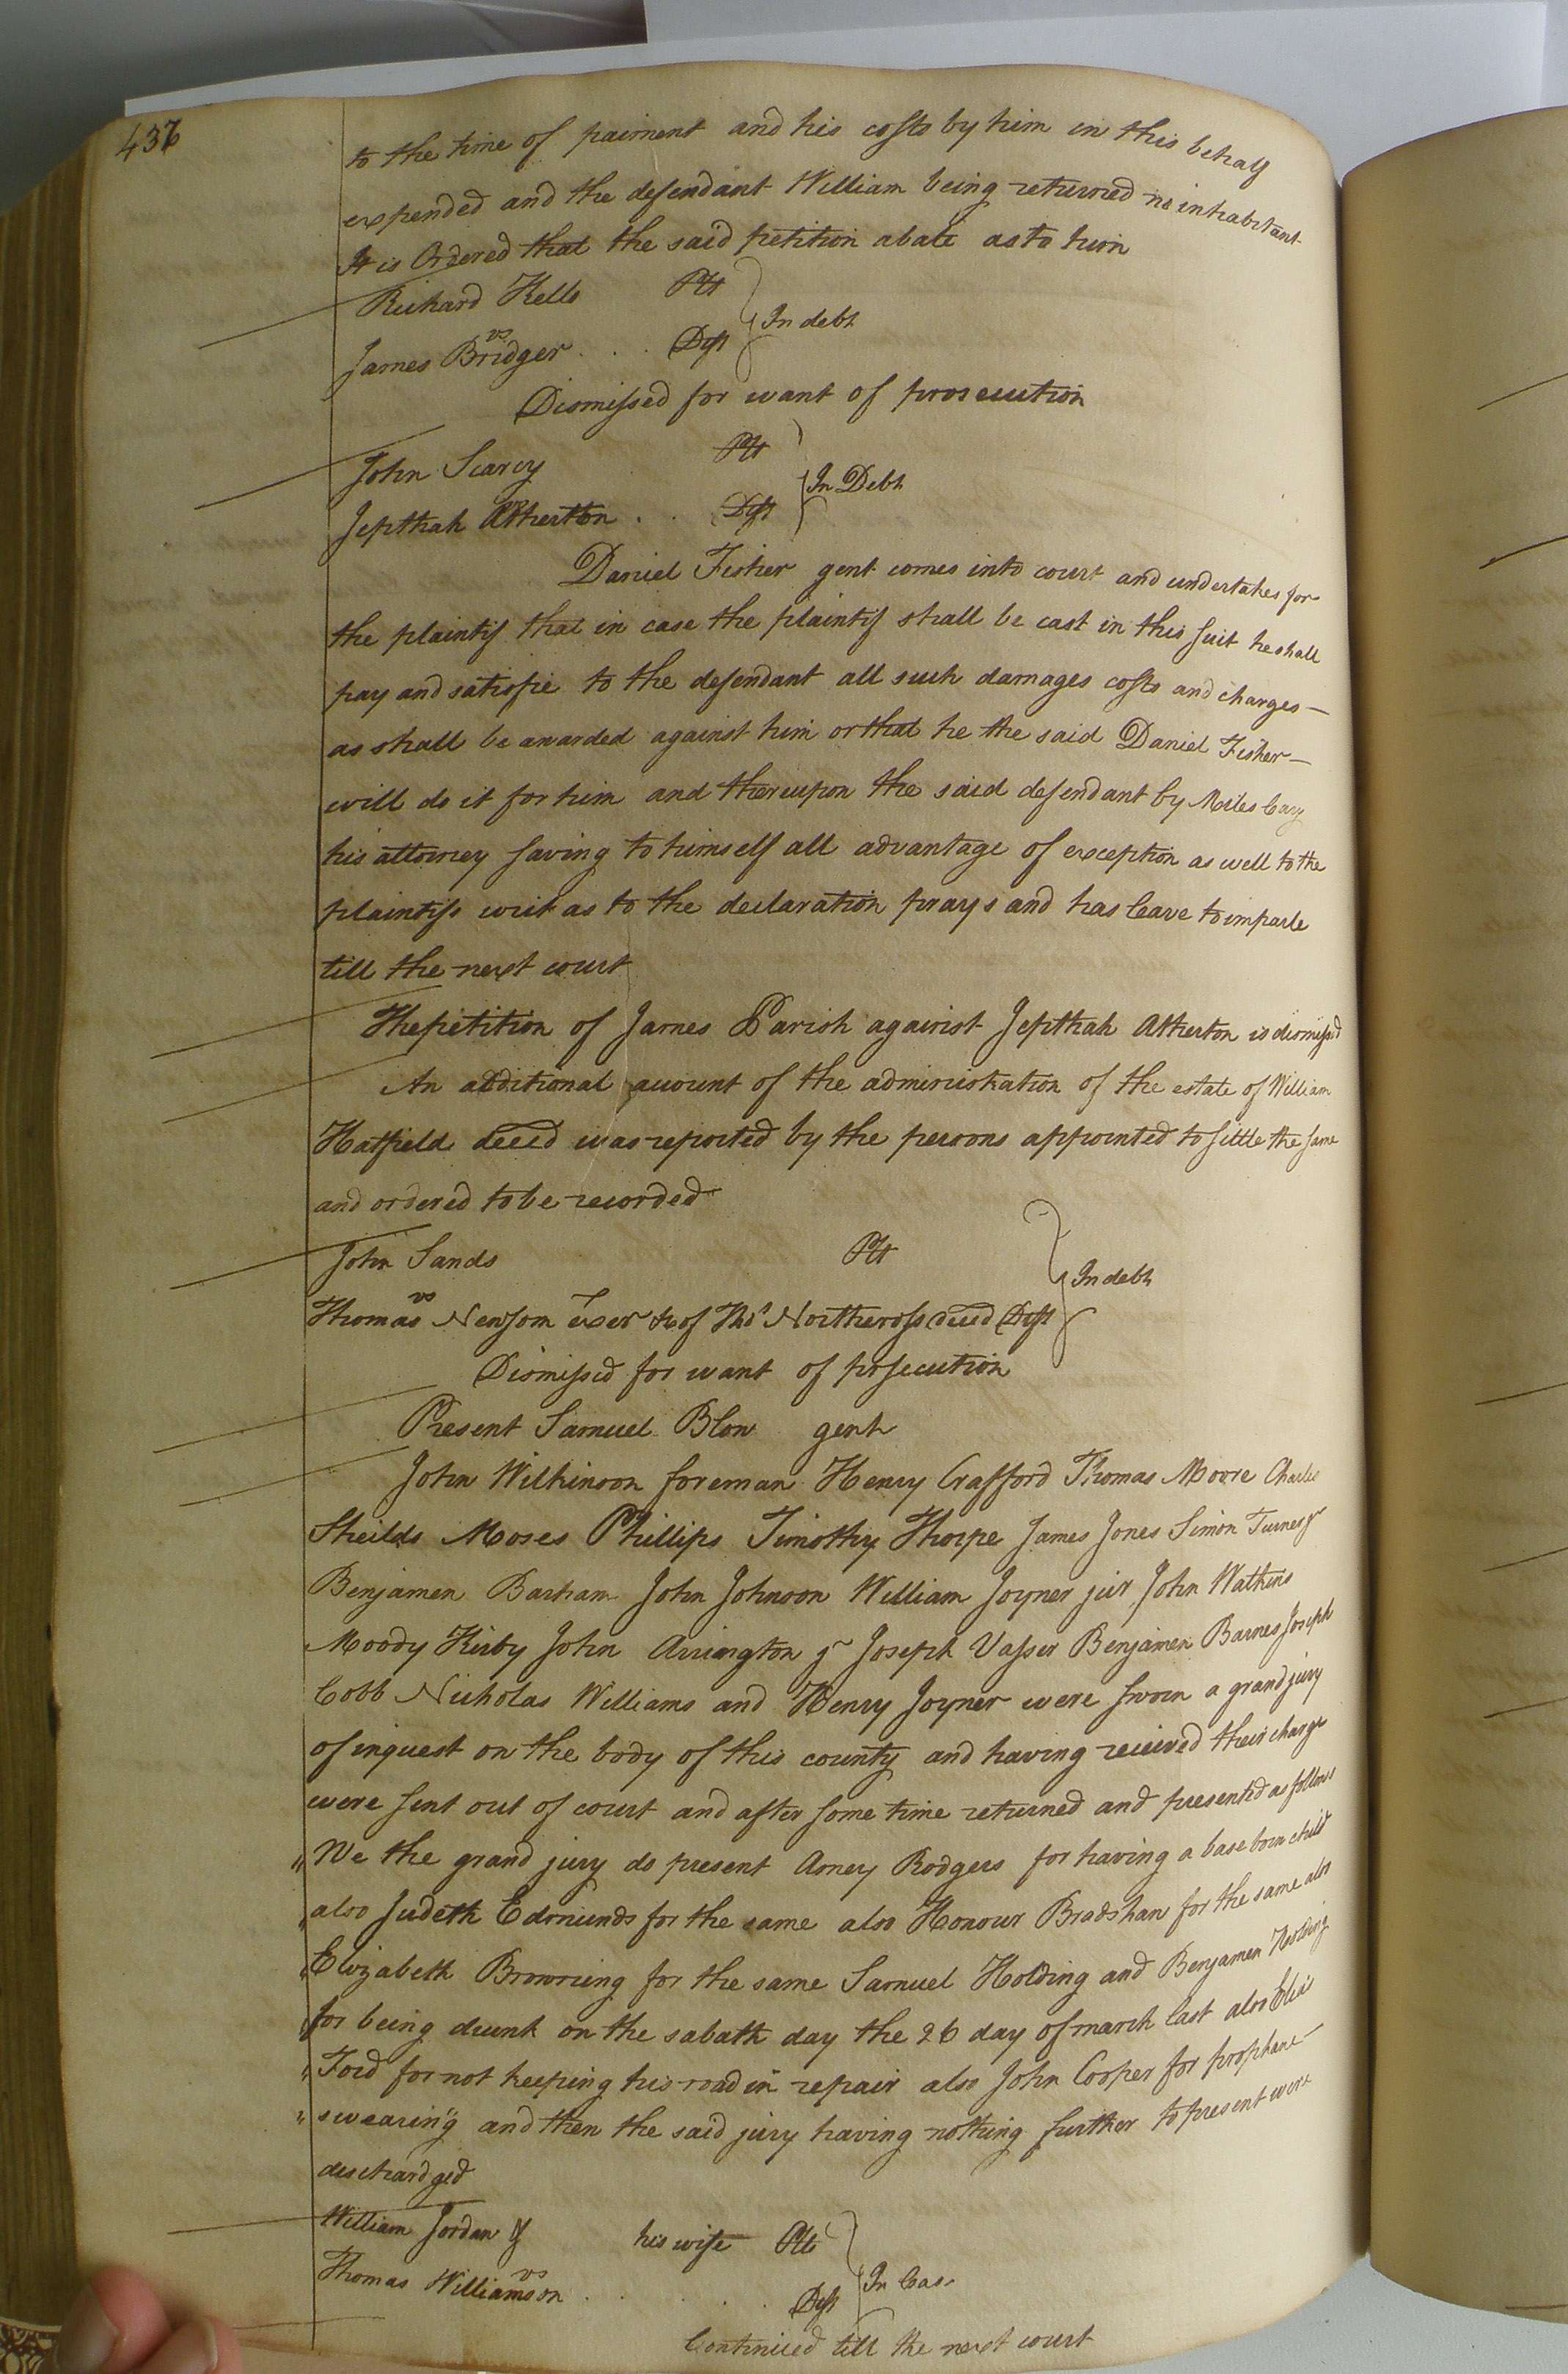 436
to the time of paiment and his costs by him in this behalf
expended and the defendant William being returned no inhabitant
It is Ordered that the said petition abate as to him
Richard Kello Plt
vs In debt
James Bridger . . . Deft
Dismissed for want of prosecution
John Searcy Plt
vs In Debt
Jepthah Atherton . . Deft
Daniel Fisher gent comes into court and undertakes for
the plaintif that in case the plaintif shall be cast in this suit he shall
pay and satisfie to the defendant all such damages costs and charges —
as shall be awarded against him or that he the said Daniel Fisher —
will do it for him and thereupon the said defendant by Miles Cary
his attorney saving to himself all advantage of exception as well to the
plaintifs writ as to the declaration prays and has leave to imparle
till the next court
The petition of James Parish against Jepthah Atherton is dismissed
An additional account of the administration of the estate of William
Hatfield deced was reported by the persons appointed to settle the same
and ordered to be recorded
John Sands Plt
vs In debt
Thomas Newsom exer &c of Thos Northcross deced Deft
Dismissed for want of prosecution
Present Samuel Blow gent
John Wilkinson foreman Henry Crafford Thomas Moore Charles
Sheilds Moses Phillips Timothy Thorpe James Jones Simon Turner jr
Benjamen Barham John Johnson William Joyner jur John Watkins
Moody Kirby John Arrington jr Joseph Vasser Benjamen Barnes Joseph
Cobb Nicholas Williams and Henry Joyner were sworn a grand jury
of inquest on the body of this county and having received their charge
were sent out of court and after some time returned and presented as follows
"We the grand jury do present Amey Rodgers for having a base born child
"also Judeth Edmunds for the same also Honour Bradshaw for the same also
"Elizabeth Browning for the same Samuel Holding and Benjamen Holding
"for being drunk on the sabath day the 26 day of march last also Elias
"Ford for not keeping his road in repair also John Cooper for prophane —
"swearing" and then the said jury having nothing further to present were
deschardged
William Jordan & his wife Plts
vs In Case
Thomas Williamson . . . . Deft
Continued till the next court